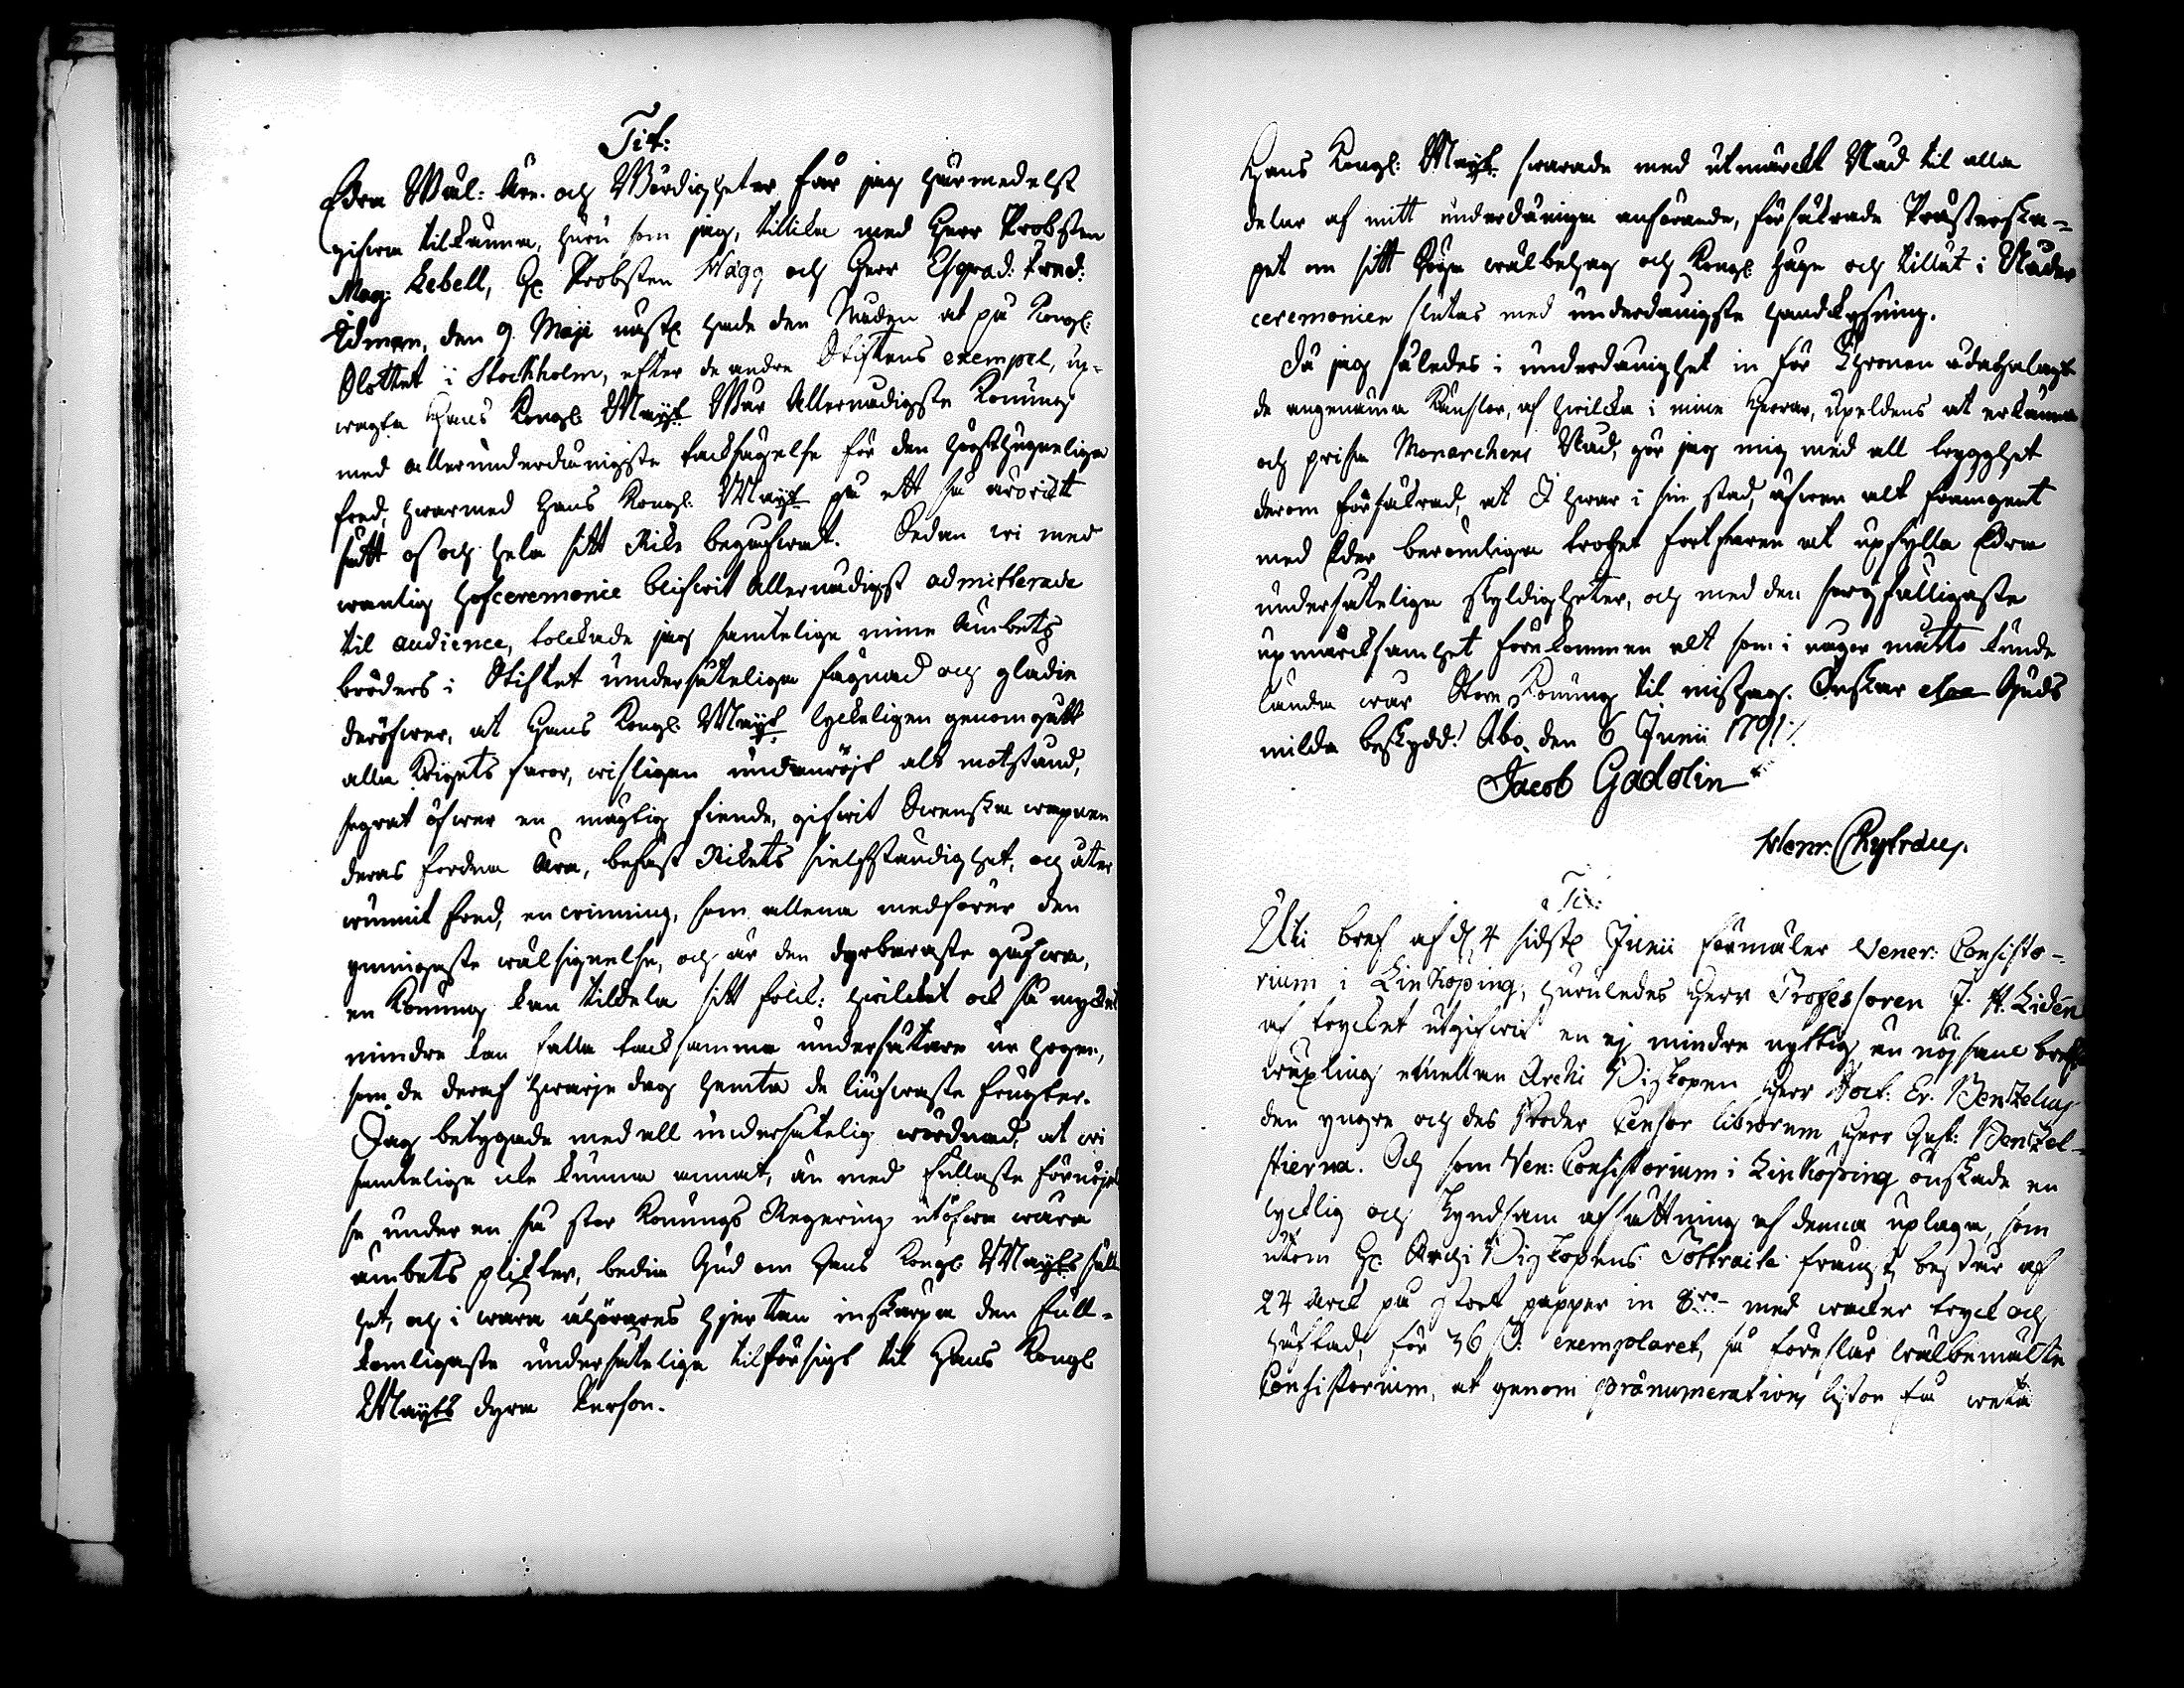 Tit:
Edra Wäl: Äre. och Wördigheter får jag härmedelst
gifwa tilkänna, huru som jag, tillika med Herr Probsten
Mag: Lebell, H: Probsten Hägg och Herr Ehgrad: Pred:
Idman, den 9. Maji näst: hade den Nåden at på Kongl:
Slottet i Stockholm, efter de andre Stiftens exempel, up-
wagta Hans Kongl: Mayt: Wår Allernådigste Konung
med allerunderdånigste tacksägelse för den högsthugnelige
fred, hwarmed Hans Kongl: Mayt på ett så ärorikt
sätt oss och hela sitt Rike begåfwat. Sedan wi med
wanlig Hofceremonie blifwit Allernådigst admitterade
til audience, tolckade jag samtelige mine Ämbets
bröders i Stiftet undersåtelige fägnad och glädje
deröfwer, at Hans Kongl: Mayt lyckeligen genomgått
alla Krigets faror, wisligen undanröjt alt motstånd,
segrat öfwer en mägtig fiende, gifwit Swenska wapnen
deras fordna Ära, befäst Rikets sjelfständighet, och åter
wunnit fred, en winning, som allena medförer den
ymnigaste wälsignelse, och är den dyrbaraste gåfwa,
en Konung kan tildela sitt folck: hwilcket ock så mycket
mindre kan falla tacksamma undersåtare ur hogen,
som de deraf hwarje dag hemta de ljufwaste frugter.
Jag betygade med all undersåtelig wördnad, at wi
samtelige icke kunna annat, än med fullaste förnöjel
se under en så stor Konungs Regering utöfwa wåra
ämbets plikter, bedia Gud om Hans Kongl: Mayts säll
het, och i wåra åhörares hjertan inskärpa den full-
komligaste undersåtelige tilförsigt til Hans Kongl
Mayts dyra Person.
Hans Kongl: Mayt: swarade med utmärckt Nåd til alla
delar af mitt underdåniga anförande, försäkrade Prästerska-
pet om sitt höga wälbehag och Kongl: hägn och tillät i Nåder
ceremonien slutas med underdånigste handkysning.
Då jag således i underdånighet in för Thronen ådagalagt
de angenäma Känslor, af hwilcka i mine Herrar, upeldens at erkänna
och prisa Monarchens Nåd, gör jag mig med all trygghet
derom försäkrad, at I hwar i sin stad, äfwen alt framgent
med Eder berömliga trohet fortfaren at upfylla Edra
undersåtelige skyldigheter, och med den sorgfälligaste
upmärcksamhet förekommen alt som i någor måtto kunde
lända wår Store Konung til misshag. Önskar Guds
milda beskydd! Åbo den 6 Junii 1791.
Jacob Gadolin
Henr. Chytræus.
Tit:
Uti bref af d 4 sidst: Junii förmäler Vener: Consisto-
rium i Linköping, huruledes Herr Professoren J. H. Lidén
af trycket utgifwit en ej mindre nyttig än nöjsam bref
wäxling emellan Archi Biskopen Herr Doct: Er. Benzelius
den yngre och des Broder Censor librorum Herr Gust: Benzel-
stierna. Och som Ven: Consistorium i Linköping önskade en
lycklig och skyndsam afsättning af denna uplaga, som
utom H: ArchiBiskopens Pottraite framst, består af
24 Arck på stort papper in 8:vo med wacker tryck och
häftad, för 36 s: exemplaret, så föreslår Wälbemälte
Consistorium, at genom Prånumerations listor få weta